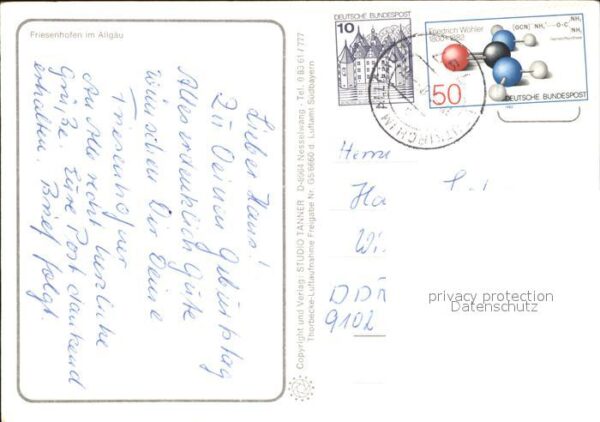 Friesenhofen im Allgäu
Lieber Hans!
Zu Deinem Geburtstag
Alles erdenklich Gute
wünschen Dir Deine
Friesenhofner
An Alle recht herzliche
Grüße. Eure Post dankend
erhalten. Brief folgt
Copyright und Verlag: STUDIO TANNER · D-8964 Nesselwang · Tel. 0 83 61 / 777
Thorbecke-Luftaufnahme Freigabe Nr. G5/6660 d. Luftamt Südbayern
DEUTSCHE BUNDESPOST
10
Friedrich Wöhler
1800-1882
50
DEUTSCHE BUNDESPOST
Herrn
Ha
Wi
DDR
9102
privacy protection
Datenschutz